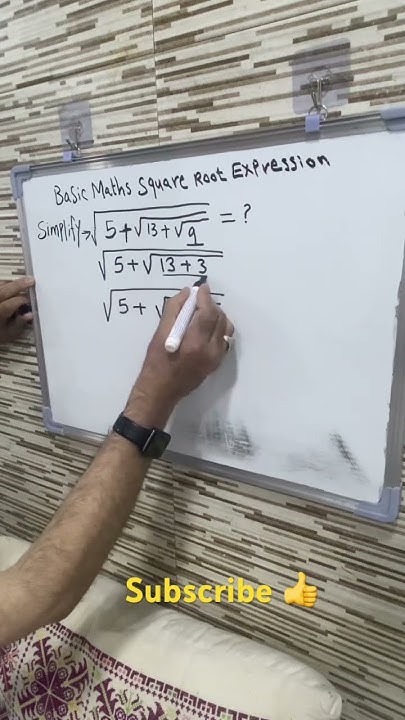 Basic Maths Square Root Expression
Simplify→√5+√13+√9 = ?
√5+√13+3
√5+√
Subscribe 👍